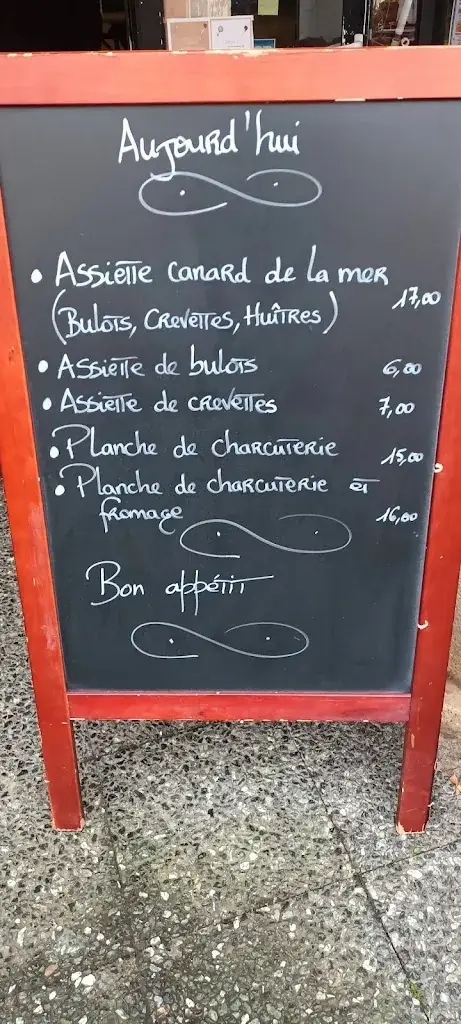 Aujourd'hui
• Assiette canard de la mer
(Bulots, Crevettes, Huîtres) 17,00
• Assiette de bulots 6,00
• Assiette de crevettes 7,00
• Planche de charcuterie 15,00
• Planche de charcuterie et
fromage 16,00
Bon appétit